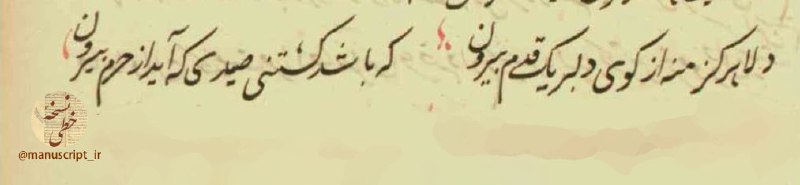 دلا هرکز منه از کوی دلبر یک قدم بیرون که باشد کشتنی صیدی که آید از حرم بیرون
نسخه خطی
@manuscript_ir